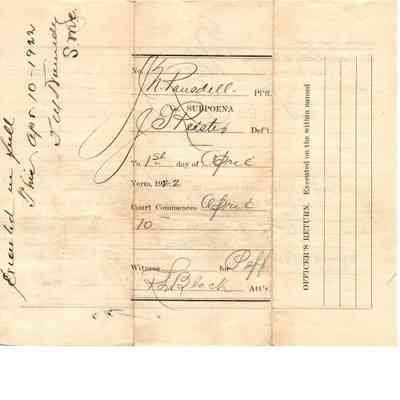 SUBPOENA
No.
N. Ransdell. Pl'ff.
vs. SUBPOENA
J Keister Def't.
To 1st day of April
Term, 1922
Court Commences April
10
Witness for Peff
Block Att'y.
Executed in full
this Apr 10-1922
OFFICER'S RETURN. Executed on the within named